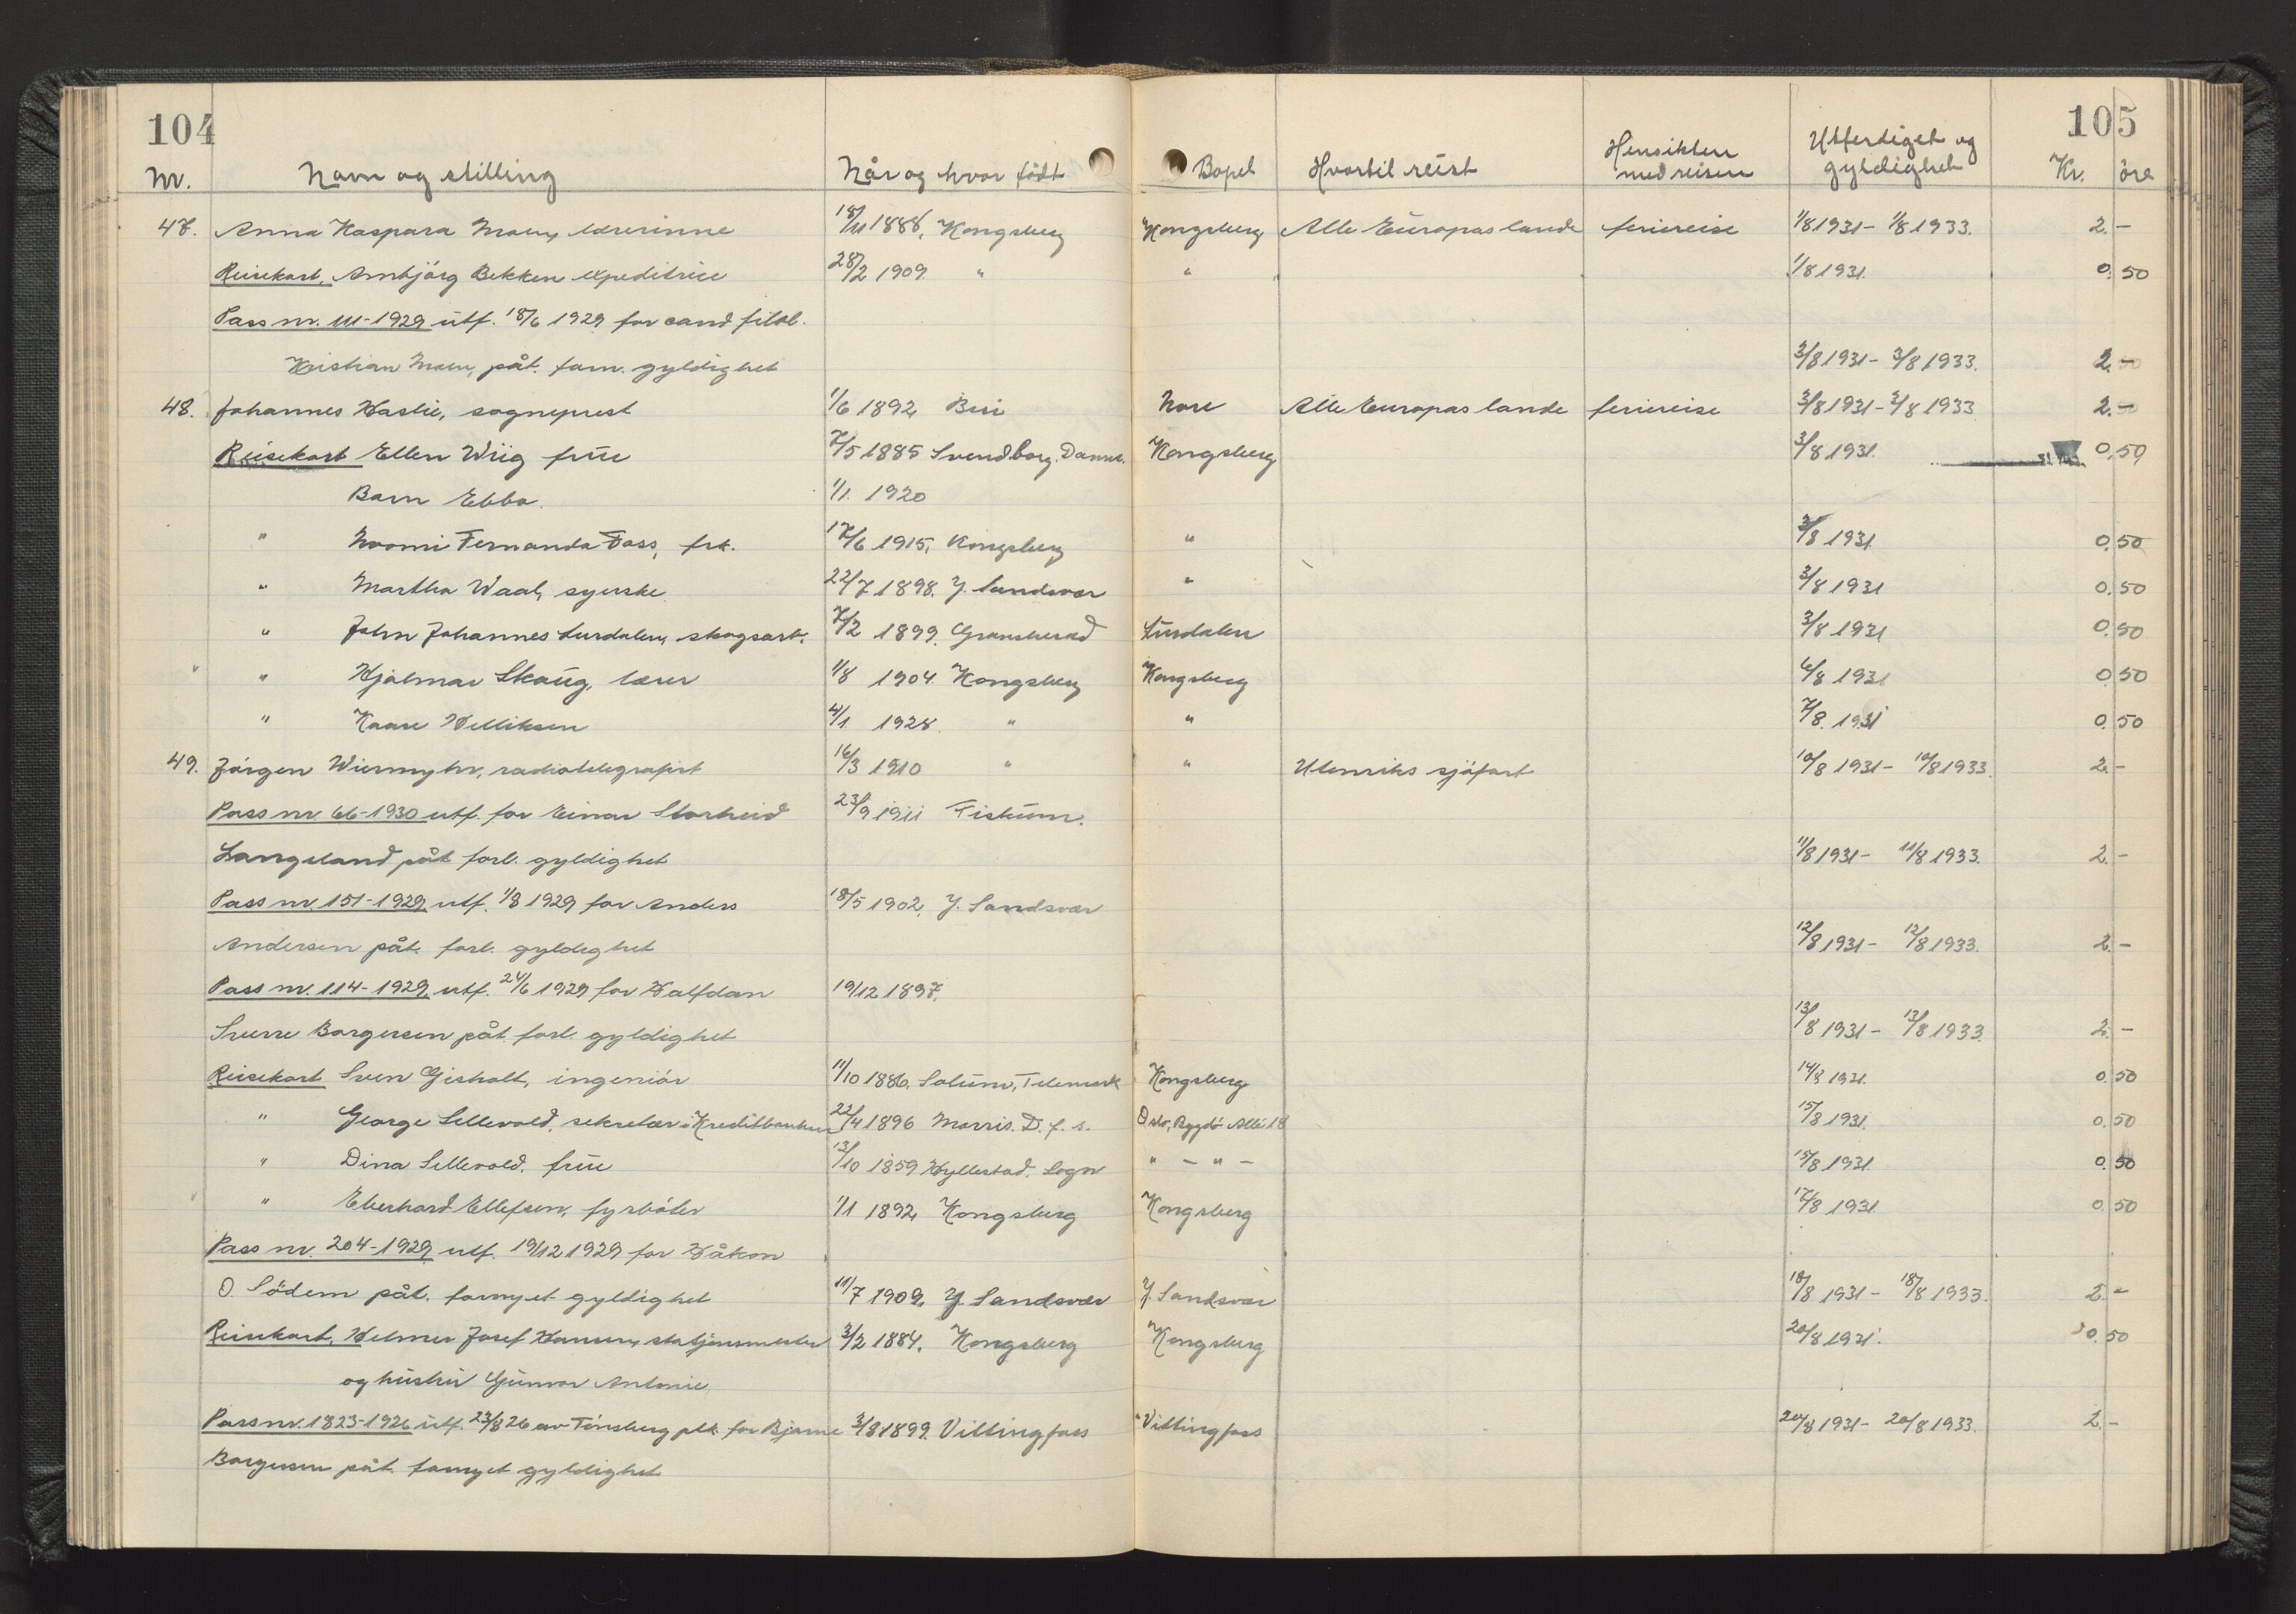 104
105
Nr. Navn og stilling Når og hvor född Bopel Hvortil reist Hensikten med reisen Utferdiget og gyldighet Kr. öre
47. Anna Kaspara Moen, lærerinne 18/11 1888, Kongsberg Kongsberg Alle Europas lande feriereise 1/8 1931 - 1/8 1933. 2. -
Reisekort, Arnbjörg Bekken expeditrice 28/2 1909 " " 1/8 1931. 0. 50
Pass nr. 111-1929 utf. 18/6 1929 for cand filol.
Kristian Moen, påt. forn. gyldighet 3/8 1931 - 3/8 1933. 2. -
48. Johannes Haslie, sogneprest 1/6 1892 Biri Nore Alle Europas lande feriereise 3/8 1931 - 3/8 1933 2. -
Reisekort Ellen Wiig frue 7/5 1885 Svendborg. Danm. Kongsberg 3/8 1931. 0. 50
Barn Ebba. 1/1. 1920
" Noomi Fernanda Foss, frk. 17/6 1915, Kongsberg " 3/8 1931. 0. 50
" Martha Waal, syerske 22/7 1898. Y. Sandsvær " 3/8 1931 0. 50
" John Johannes Lurdalen, skogsarb. 7/2 1899. Gransherad Lurdalen 3/8 1931 0. 50
" " Hjalmar Skaug, lærer 1/8 1904. Kongsberg Kongsberg 6/8 1931 0. 50
" Kaare Helliksen 4/1 1928. " " 7/8. 1931 0. 50
49. Jörgen Wiermyhr, radiotelegrafist 16/3 1910 " " Utenriks sjöfart 10/8 1931 - 10/8 1933. 2. -
Pass nr. 66-1930 utf. for Einar Storheid 23/9 1911 Fiskum.
Langeland påt forl. gyldighet 11/8 1931 - 11/8 1933. 2. -
Pass nr. 151-1929 utf. 1/8 1929 for Anders 18/5 1902, Y. Sandsvær
Andersen påt. forl. gyldighet 12/8 1931 - 12/8 1933. 2. -
Pass nr. 114-1929 utf. 24/6 1929 for Halfdan 19/12 1897.
Sverre Borgersen påt. forl. gyldighet 13/8 1931 - 13/8 1933. 2. -
Reisekort Sven Gisholt, ingeniör 11/10 1886. Solum, Telemark Kongsberg 14/8 1931. 0. 50
" George Sellevold, sekretær i Kreditbanken 22/4 1896 Morris. D. f. s. Oslo, Bygdö Allé 18 15/8 1931. 0. 50
" Dina Sellevold. frue 13/10 1859 Hyllestad. Sogn " - " - 15/8 1931. 0. 50
" Eberhard Ellefsen, fyrböter 1/1 1892, Kongsberg Kongsberg 17/8 1931 0. 50
Pass nr. 204-1929 utf. 19/12 1929 for Håkon
O. Södem påt. fornyet gyldighet 11/7 1909, Y. Sandsvær Y. Sandsvær 18/8 1931 - 18/8 1933. 2. -
Reisekort, Helmer Josef Hansen, stasjonsmester 3/2 1884. Kongsberg Kongsberg 20/8 1931. 0. 50
og hustru Gunvor Antonie
Pass nr. 1823-1926 utf. 23/8 26 av Tönsberg plk. for Bjarne 3/8 1899. Vittingfoss Vittingfoss 20/8 1931 - 20/8 1933. 2. -
Borgersen påt. fornyet gyldighet